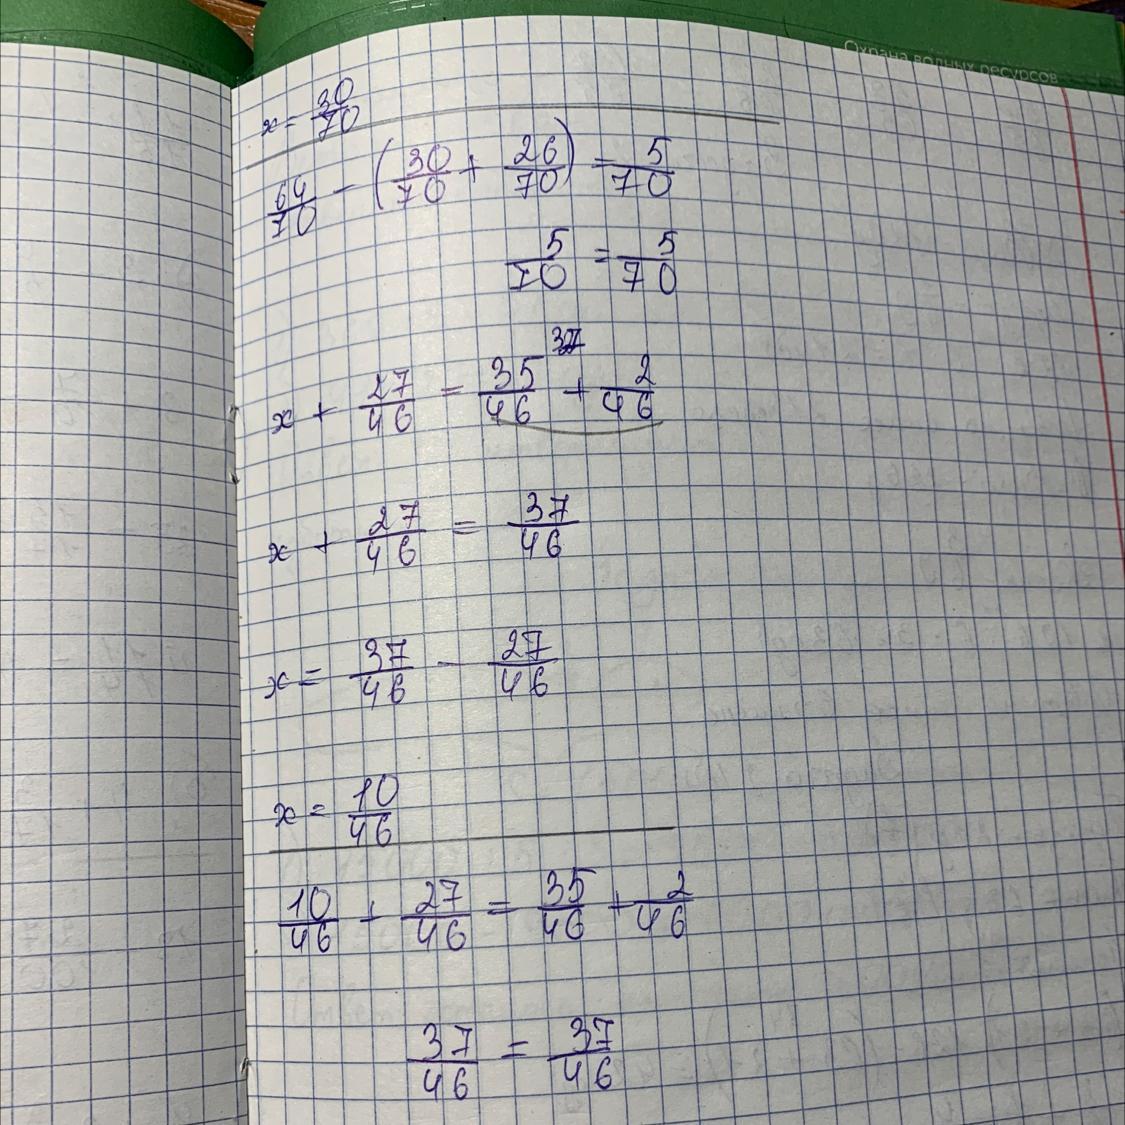 Охрана водных ресурсов
x = 30/70
64/70 - (30/70 + 26/70) = 5/70
5/70 = 5/70
37
x + 27/46 = 35/46 + 2/46
x + 27/46 = 37/46
x = 37/46 - 27/46
x = 10/46
10/46 + 27/46 = 35/46 + 2/46
37/46 = 37/46